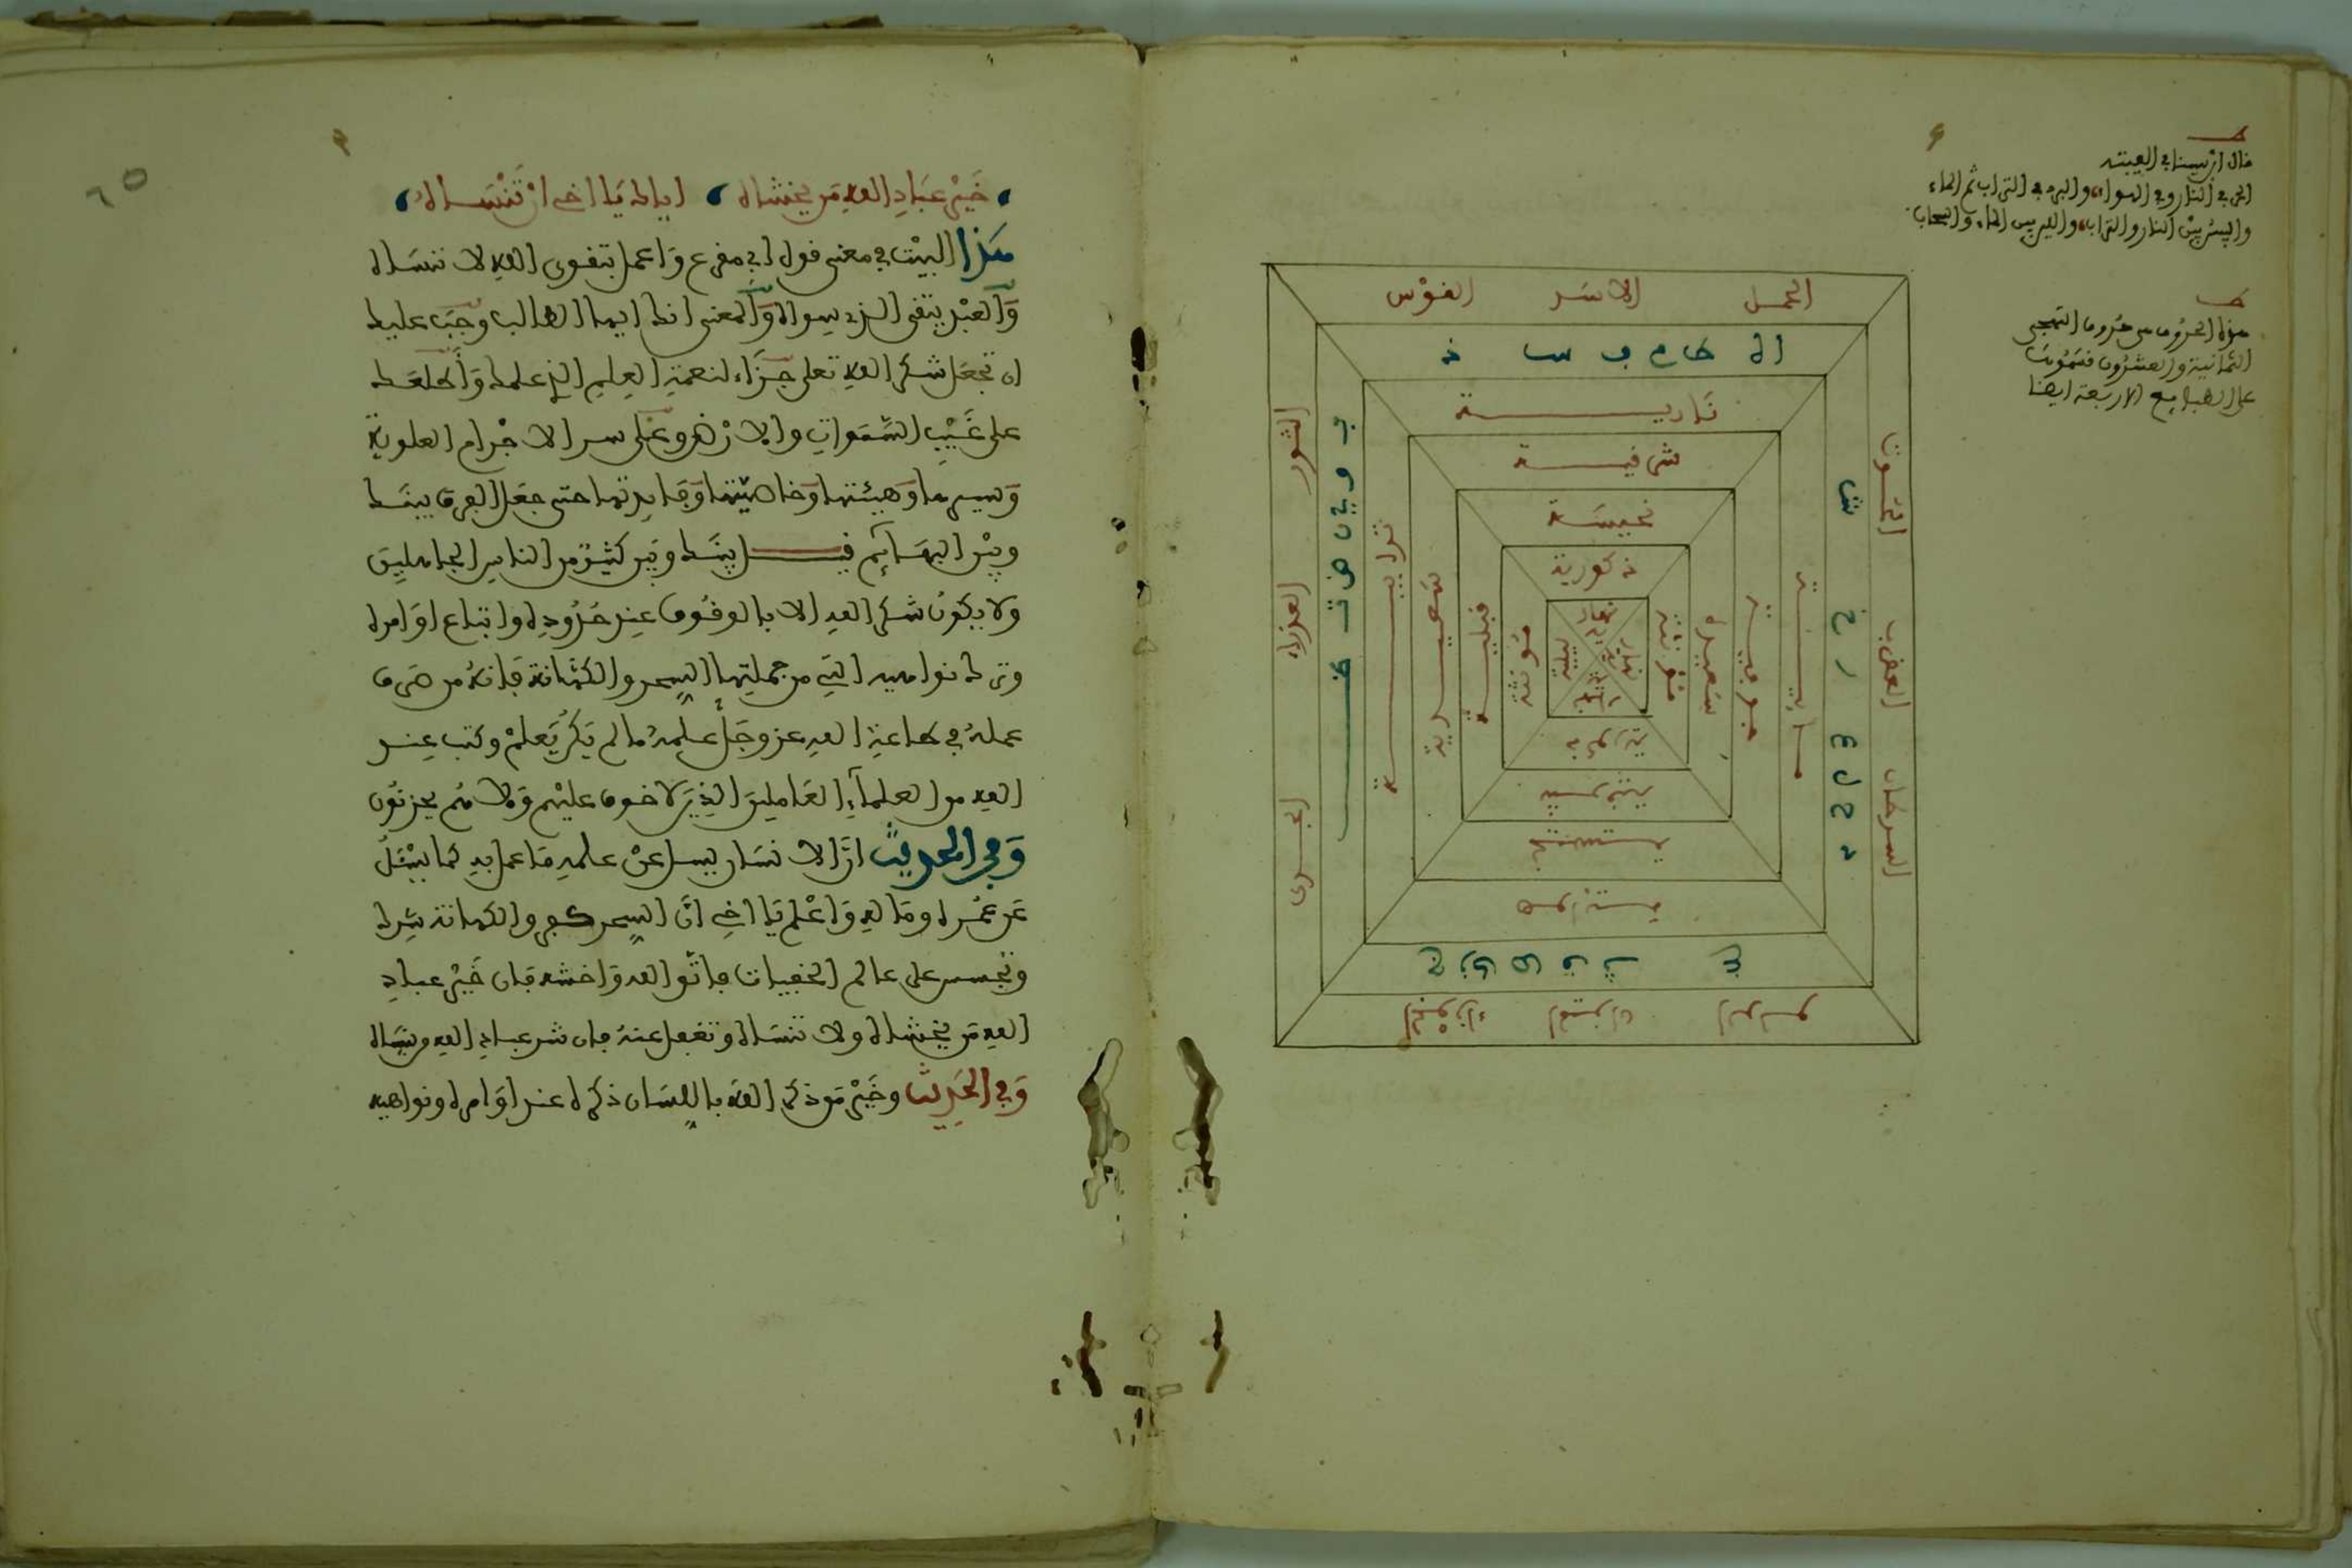 ط
قال ابن سينا في العينية
الحر في النار وفي الهواء والبرد في التراب ثم الماء
واليبس بين النار والتراب واللين بين الماء والسحاب
ط
هذه الحروف من حروف التهجي
الثمانية والعشرون قسموت
على الطبايع الاربعة ايضا
الحمل الاسد القوس
ا ه ط م ف س ذ
نارية
شرقية
نحيسة
ذكورية
نهارية
الحوت العقرب السرطان
مايية
جوفية
سعيدة
مؤنثة
الثور العذراء الجدى
ب و ي ن ض ت
ترابية
قبلية
مؤنثة
ليلية
الجوزاء الميزان الدلو
هوائية
غربية
خير عباد الله من يخشاه اياك يا اخي ان تنساه
هذا البيت في معنى قول ابي مقرع واعمل بتقوى الله لا تنساه
والعبد يتقي الذي سواه والمعنى انك ايها الطالب وجب عليك
ان تجعل شكر الله تعلى جزاء لنعمة العليم الذي علمك واطلعك
على غيب السموات والارض وعلى سر الاجرام العلوية
وسيرها وهيئتها وخاصيتها وفايدتها حتى جعل الفرق بينك
وبين البهايم فيل بينك وبين كثير من الناس الجاهلين
ولا يكون شكر الله الا بالوقوف عند حدوده واتباع اوامره
وترك نواهيه التي من جملتها السحر والكهانة فانه من صرف
عمله في طاعة الله عز وجل علمه ما لم يكن يعلم وكتب عند
الله من العلماء العاملين الذين لا خوف عليهم ولا هم يحزنون
وفي الحديث ان الانسان يسل عن علمه ما عمل به كما يسل
عن عمره وماله واعلم يا اخي ان السحر كفر والكهانة شرك
وتجسس على عالم الخفيات فاتقو الله واخشه فان خير عباد
الله من يخشاه ولا تنساه وتغفل عنه فان شر عباد الله من ينساه
وفي الحديث وخير من ذكر الله باللسان ذكره عند اوامره ونواهيه